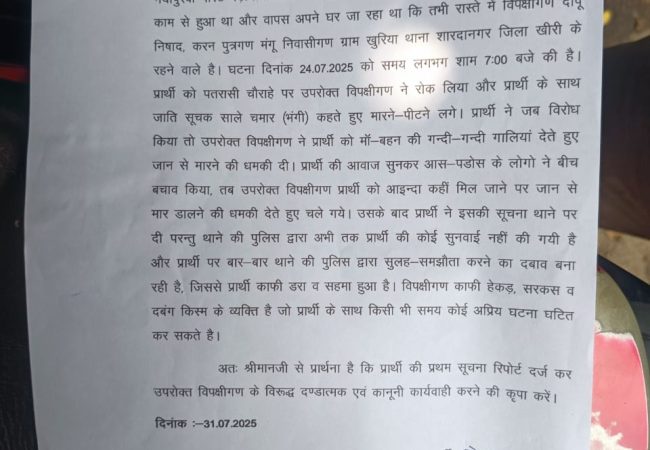 काम से हुआ था और वापस अपने घर जा रहा था कि तभी रास्ते में विपक्षीगण दीपू
निषाद, करन पुत्रगण मंगू निवासीगण ग्राम खुरिया थाना शारदानगर जिला खीरी के
रहने वाले है। घटना दिनांक 24.07.2025 को समय लगभग शाम 7:00 बजे की है।
प्रार्थी को पतरासी चौराहे पर उपरोक्त विपक्षीगण ने रोक लिया और प्रार्थी के साथ
जाति सूचक साले चमार (भंगी) कहते हुए मारने–पीटने लगे। प्रार्थी ने जब विरोध
किया तो उपरोक्त विपक्षीगण ने प्रार्थी को मॉ–बहन की गन्दी–गन्दी गालियां देते हुए
जान से मारने की धमकी दी। प्रार्थी की आवाज सुनकर आस–पडोस के लोगो ने बीच
बचाव किया, तब उपरोक्त विपक्षीगण प्रार्थी को आइन्दा कहीं मिल जाने पर जान से
मार डालने की धमकी देते हुए चले गये। उसके बाद प्रार्थी ने इसकी सूचना थाने पर
दी परन्तु थाने की पुलिस द्वारा अभी तक प्रार्थी की कोई सुनवाई नहीं की गयी है
और प्रार्थी पर बार–बार थाने की पुलिस द्वारा सुलह–समझौता करने का दबाव बना
रही है, जिससे प्रार्थी काफी डरा व सहमा हुआ है। विपक्षीगण काफी हेकड़, सरकस व
दबंग किस्म के व्यक्ति है जो प्रार्थी के साथ किसी भी समय कोई अप्रिय घटना घटित
कर सकते है।
अतः श्रीमानजी से प्रार्थना है कि प्रार्थी की प्रथम सूचना रिपोर्ट दर्ज कर
उपरोक्त विपक्षीगण के विरूद्ध दण्डात्मक एवं कानूनी कार्यवाही करने की कृपा करें।
दिनांक :–31.07.2025